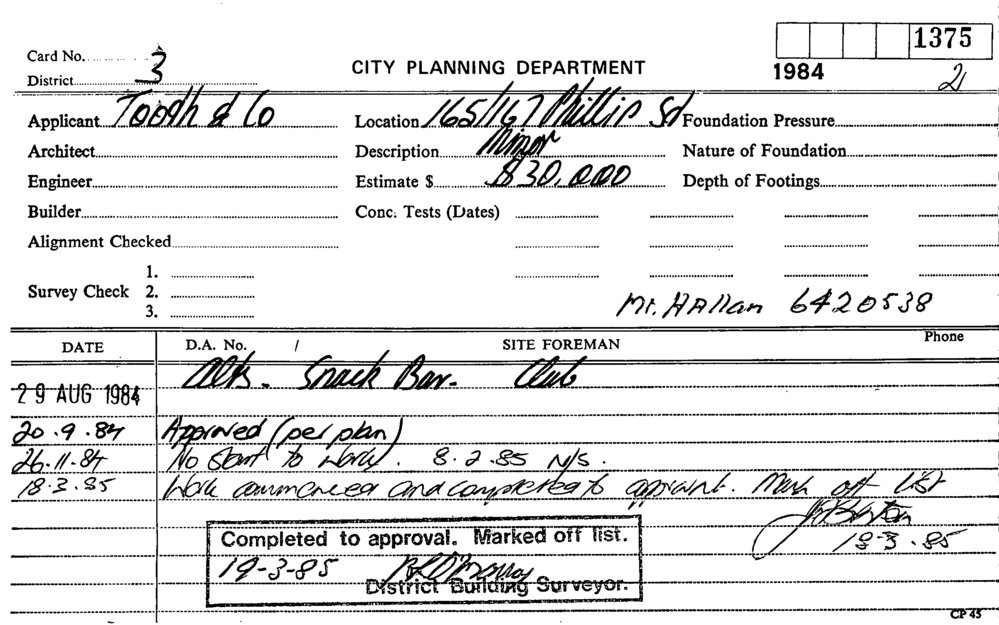 1375
Card No. 3
CITY PLANNING DEPARTMENT
1984
2
District
Applicant Tooth & Co
Location 165/167 Phillip St
Foundation Pressure
Architect
Description Minor
Nature of Foundation
Engineer
Estimate $ $30,000
Depth of Footings
Builder
Conc. Tests (Dates)
Alignment Checked
1.
Survey Check 2.
3.
Mr. HAllan 6420538
DATE
D.A. No. /
SITE FOREMAN
Phone
29 AUG 1984
Alts. Snack Bar. Club
20.9.84 Approved (per plan)
26.11.84 No Start to work. 8.2.85 N/S.
18.3.85 Work commenced and completed to appvant. Mark off LIST
18-3.85
Completed to approval. Marked off list.
19-3-85
District Building Surveyor.
CP 45